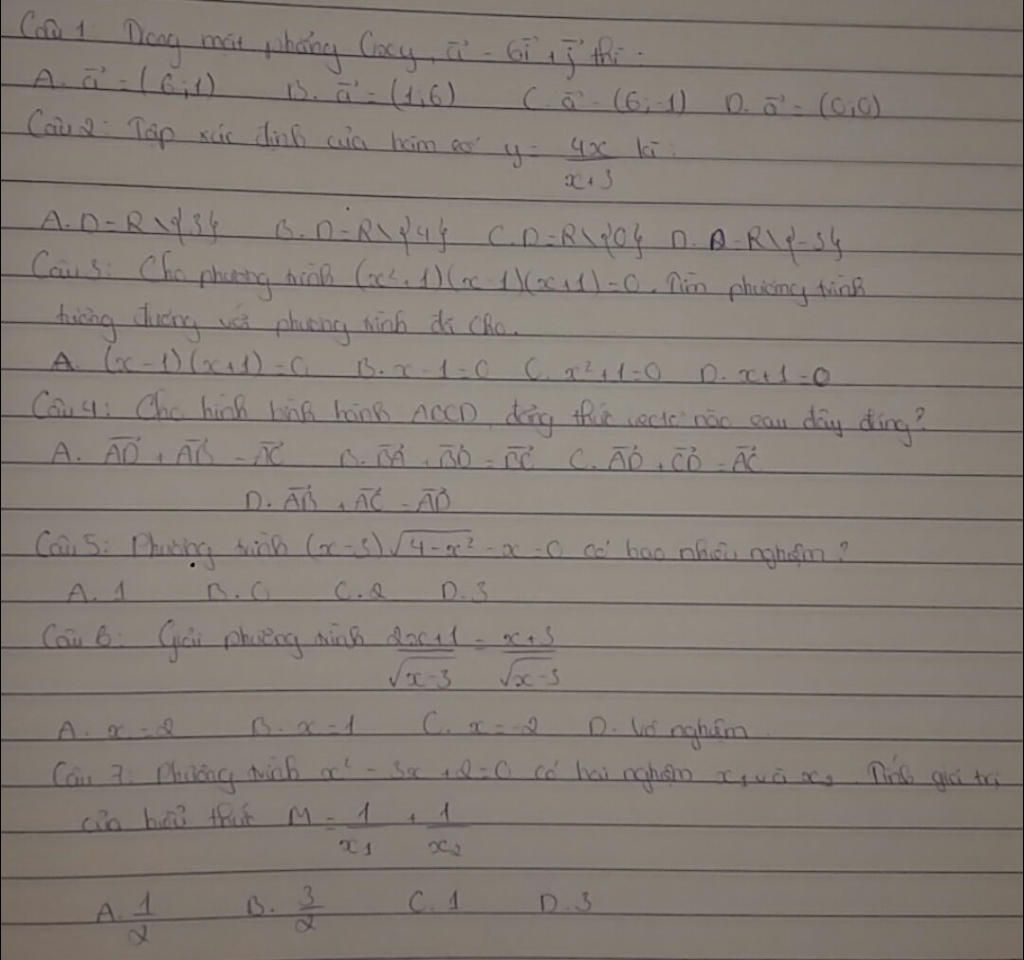 Câu 1: Trong mặt phẳng Oxy, a⃗ = 6i⃗ + j⃗ thì:
A. a⃗ = (6;1) B. a⃗ = (1;6) C. a⃗ = (6;-1) D. a⃗ = (0;0)
Câu 2: Tập xác định của hàm số y = 4x/(x+3) là:
A. D = R\{3} B. D = R\{4} C. D = R\{0} D. D = R\{-3}
Câu 3: Cho phương trình (x²+1)(x-1)(x+1)=0. Tìm phương trình
tương đương với phương trình đã cho.
A. (x-1)(x+1)=0 B. x-1=0 C. x²+1=0 D. x+1=0
Câu 4: Cho hình bình hành ABCD, đẳng thức vectơ nào sau đây đúng?
A. AD⃗ + AB⃗ = AC⃗ B. BA⃗ + BD⃗ = BC⃗ C. AD⃗ + CD⃗ = AC⃗
D. AB⃗ + AC⃗ = AD⃗
Câu 5: Phương trình (x-3)√(4-x²) - x = 0 có bao nhiêu nghiệm?
A. 1 B. 0 C. 2 D. 3
Câu 6: Giải phương trình (2x+1)/√(x-3) = (x+3)/√(x-3)
A. x = 2 B. x = 1 C. x = -2 D. Vô nghiệm
Câu 7: Phương trình x² - 3x + 2 = 0 có hai nghiệm x₁ và x₂. Tính giá trị
của biểu thức M = 1/x₁ + 1/x₂
A. 1/2 B. 3/2 C. 1 D. 3